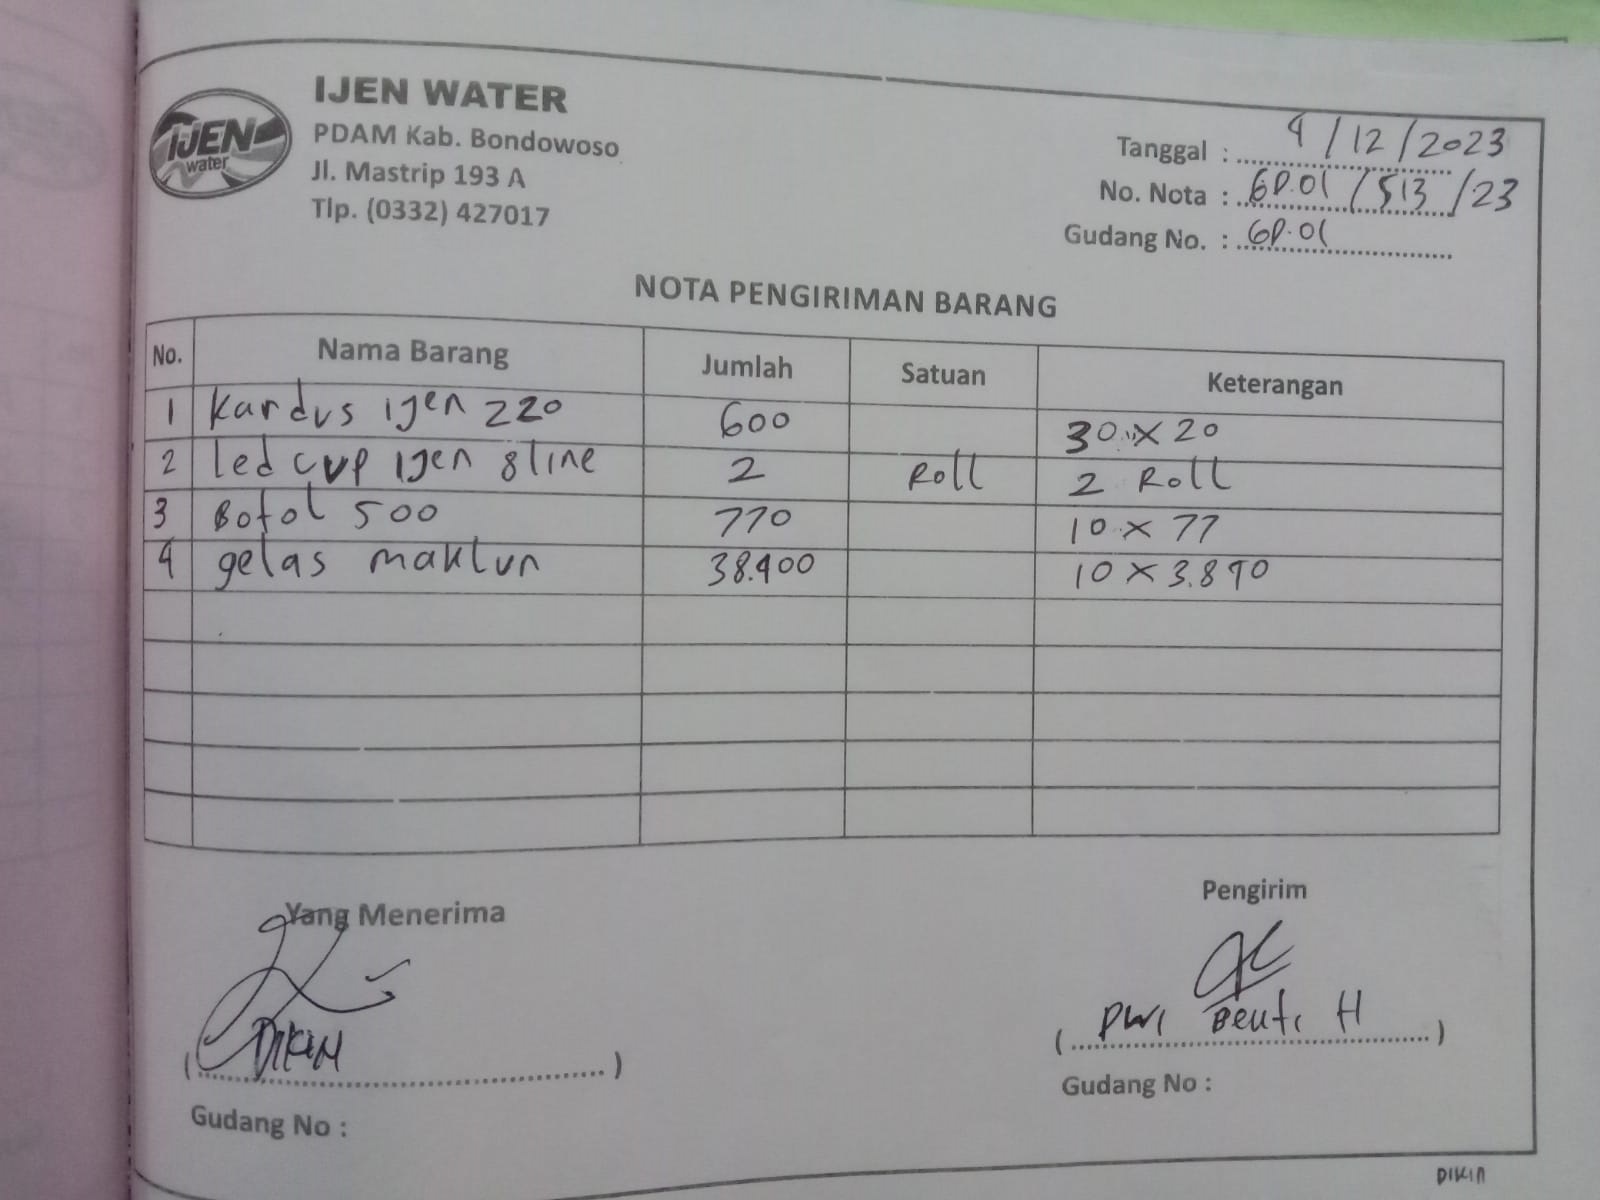 IJEN WATER
PDAM Kab. Bondowoso
Jl. Mastrip 193 A
Tlp. (0332) 427017
IJEN
water
Tanggal : 4/12/2023
No. Nota : GD.01/513/23
Gudang No. : GD.01
NOTA PENGIRIMAN BARANG
No. Nama Barang Jumlah Satuan Keterangan
1 Kardus ijen 220 600 30 x 20
2 Led cup ijen 8 line 2 Roll 2 Roll
3 Botol 500 770 10 x 77
4 gelas maklun 38.400 10 x 3.840
Yang Menerima
Pengirim
(DIKIN)
(Dwi H)
Gudang No :
Gudang No :
DIKIN